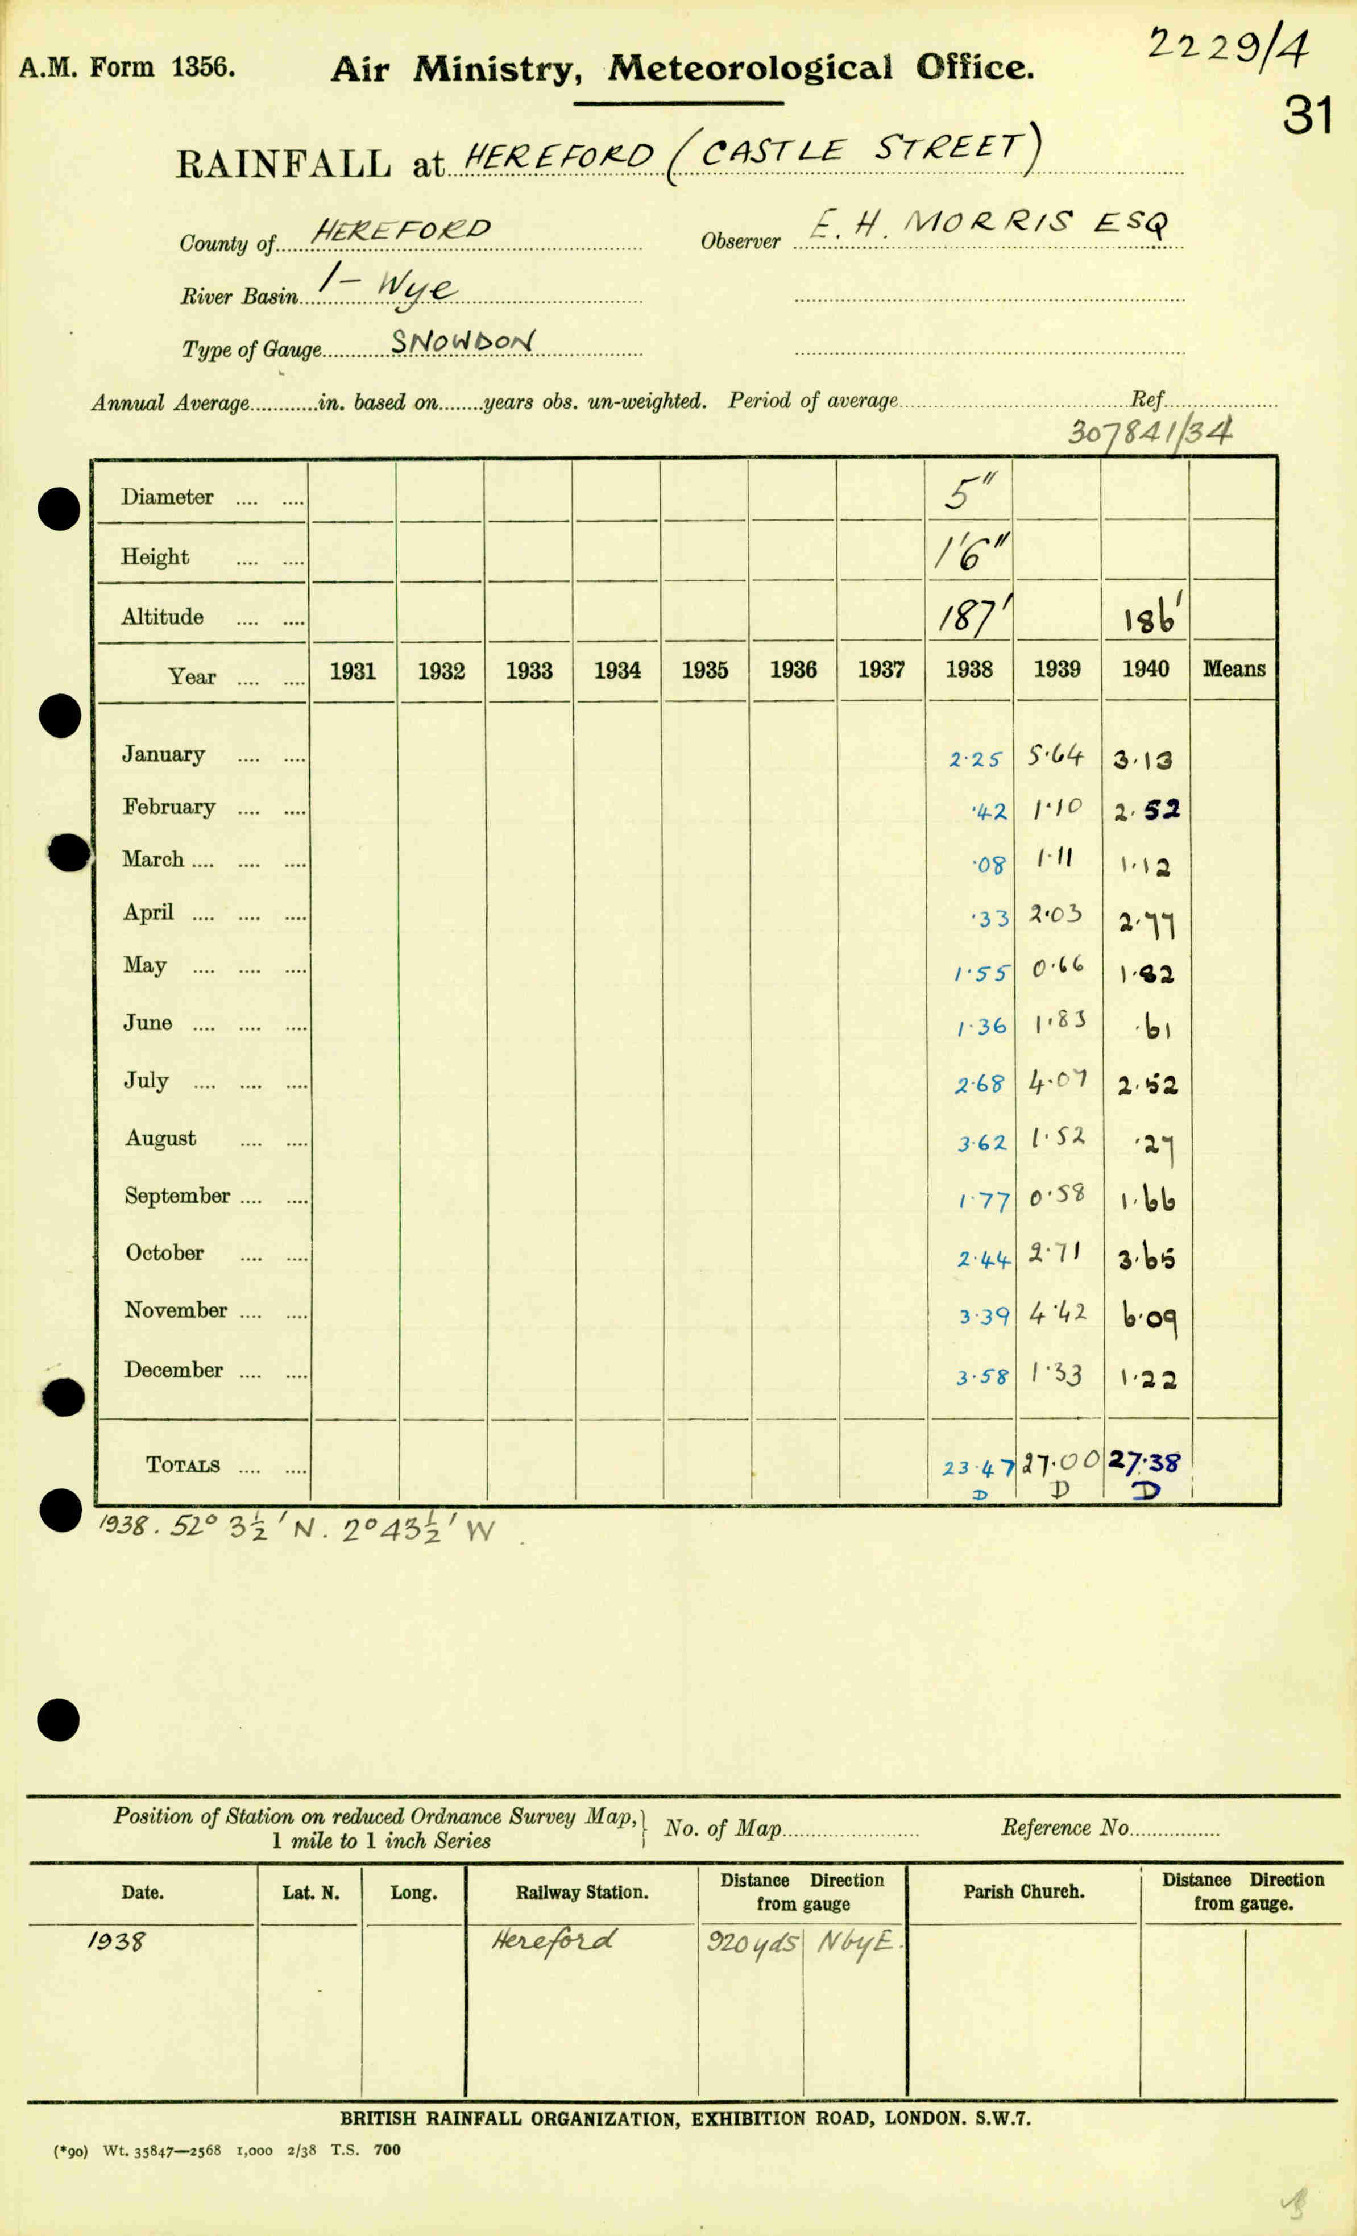 2229/4
A.M. Form 1356. Air Ministry, Meteorological Office.
31
RAINFALL at HEREFORD (CASTLE STREET)
County of HEREFORD Observer E. H. MORRIS ESQ
River Basin 1- Wye
Type of Gauge SNOWDON
Annual Average............in. based on........years obs. un-weighted. Period of average........ Ref........
307841/34
Diameter .... .... 5"
Height .... .... 1'6"
Altitude .... .... 187' 186'
Year .... .... 1931 1932 1933 1934 1935 1936 1937 1938 1939 1940 Means
January .... .... 2·25 5·64 3·13
February .... .... ·42 1·10 2·52
March .... .... .... ·08 1·11 1·12
April .... .... .... ·33 2·03 2·77
May .... .... .... 1·55 0·66 1·82
June .... .... .... 1·36 1·83 ·61
July .... .... .... 2·68 4·07 2·52
August .... .... 3·62 1·52 ·27
September .... .... 1·77 0·58 1·66
October .... .... 2·44 2·71 3·65
November .... .... 3·39 4·42 6·09
December .... .... 3·58 1·33 1·22
TOTALS .... .... 23·47 27·00 27·38
D D D
1938. 52° 3½' N. 2° 43½' W.
Position of Station on reduced Ordnance Survey Map, } No. of Map........ Reference No........
1 mile to 1 inch Series
Date. Lat. N. Long. Railway Station. Distance Direction from gauge Parish Church. Distance Direction from gauge.
1938 Hereford 920 yds N by E.
BRITISH RAINFALL ORGANIZATION, EXHIBITION ROAD, LONDON. S.W.7.
(*90) Wt. 35847—2568 1,000 2/38 T.S. 700